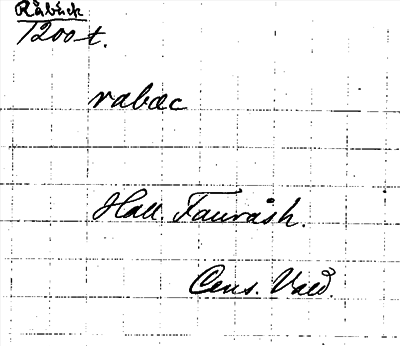 Råbäck
1200 t.
rabæc
Hall Fauråsh.
Cens. Vald.